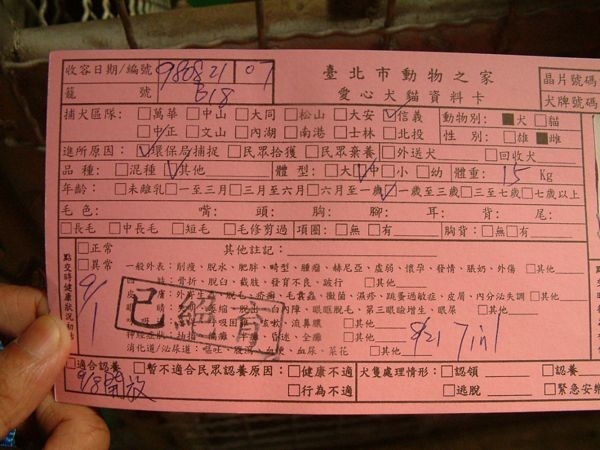 收容日期/編號 980821 07 臺北市動物之家 晶片號碼
籠號 B18 愛心犬貓資料卡 犬牌號碼
捕犬區隊: □萬華 □中山 □大同 □松山 □大安 ☑信義 動物別: ■犬 □貓
□中正 □文山 □內湖 □南港 □士林 □北投 性別: □雄 ■雌
進所原因: ☑環保局捕捉 □民眾拾獲 □民眾棄養 □外送犬 □回收犬
品種: □混種 ☑其他 體型: □大 ☑中 □小 □幼 體重: 15 Kg
年齡: □未離乳 □一至三月 □三月至六月 □六月至一歲 ☑一歲至三歲 □三至七歲 □七歲以上
毛色: 嘴: 頭: 胸: 腳: 耳: 背: 尾:
□長毛 □中長毛 □短毛 □毛修剪過 項圈: □無 □有 胸背: □無 □有
點交時健康狀況初估
□正常 其他註記:
□異常 一般外表: 削瘦、脫水、肥胖、畸型、腫瘤、赫尼亞、虛弱、懷孕、發情、脹奶、外傷 □其他
9/1
四肢: 骨折、脫臼、截肢、發育不良、跛行 □其他
皮膚: 外寄生蟲、脫毛、疥癬、毛囊蟲、黴菌、濕疹、跳蚤過敏症、皮屑、內分泌失調 □其他
脫出、白內障、眼眶脫毛、第三眼瞼增生、眼屎 □其他
流鼻膿 □其他
昏迷、全癱 □其他
消化道/泌尿道: 嘔吐、血便、血尿、菜花 □其他
已絕育
8/21 7in1
□適合認養 □暫不適合民眾認養原因: □健康不適 犬隻處理情形: □認領 □認養
9/8開放 □行為不適 □逃脫 □緊急安樂